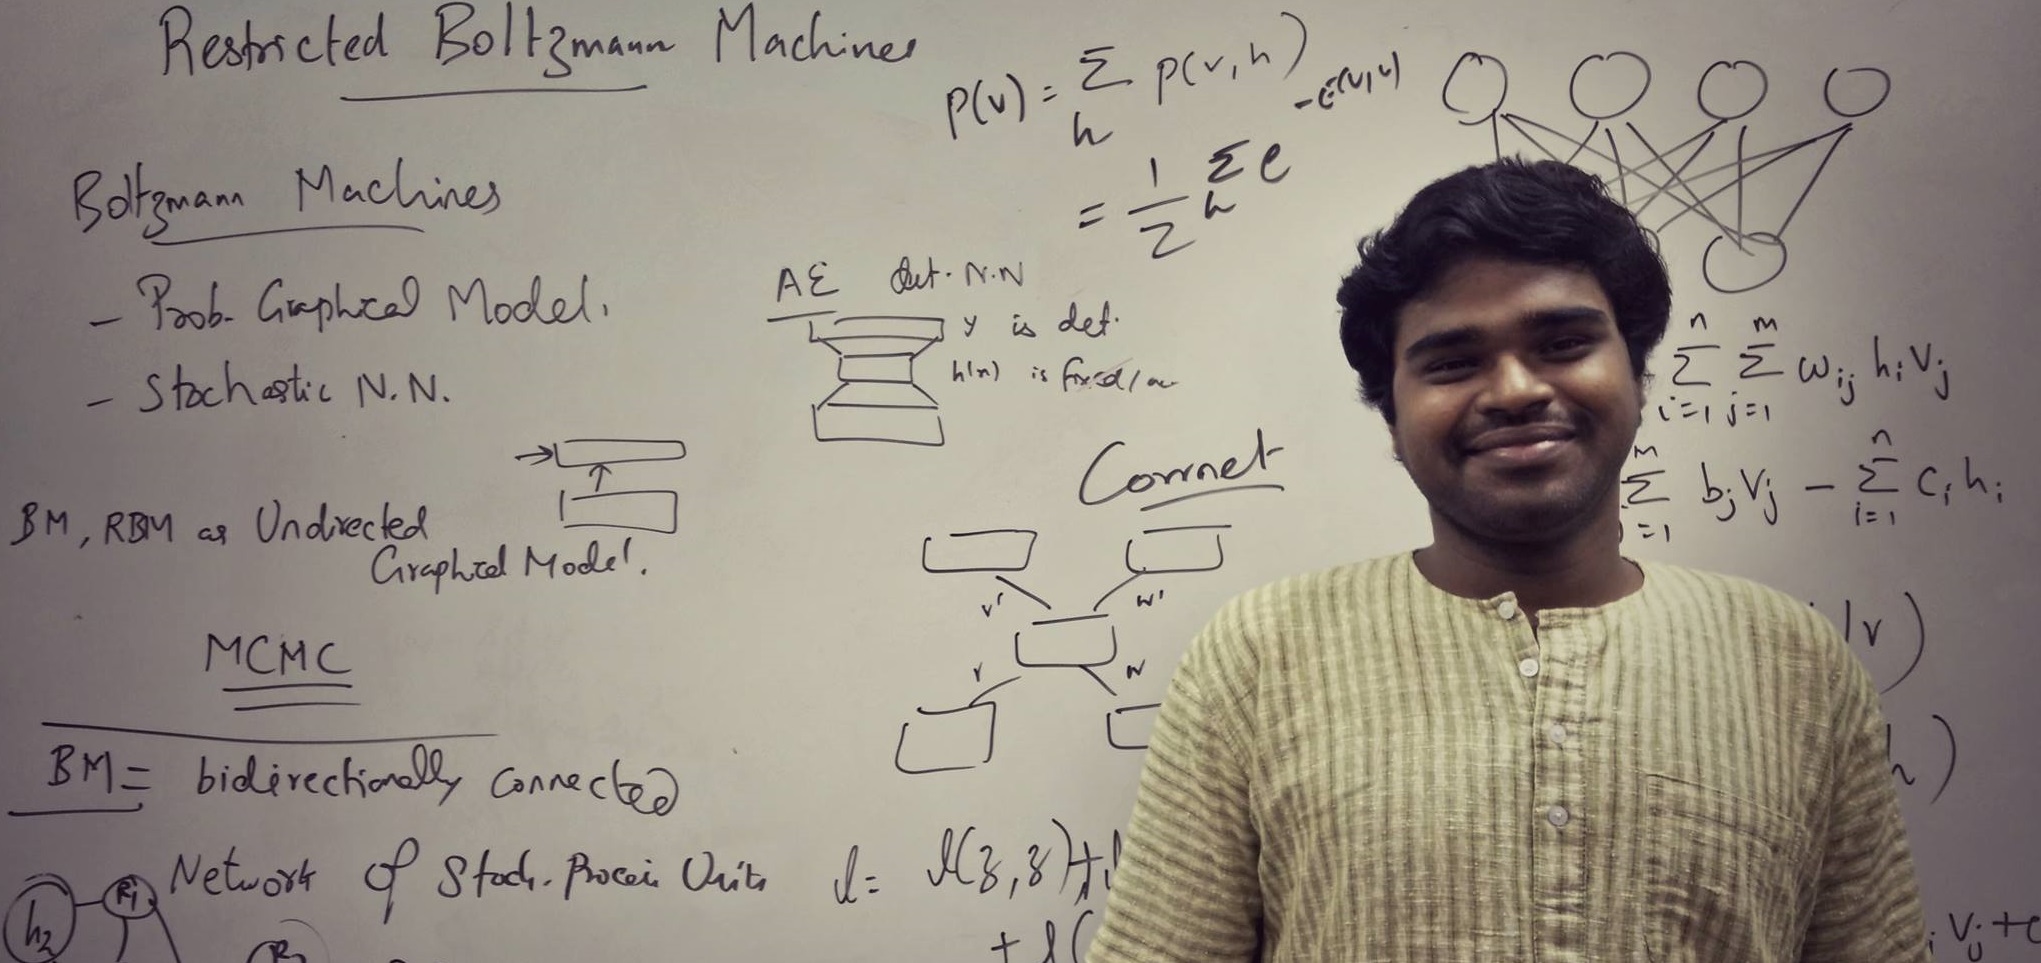 Restricted Boltzmann Machines
Boltzmann Machines
- Prob. Graphical Model.
- Stochastic N.N.
BM, RBM as Undirected
Graphical Model.
MCMC
BM = bidirectionally connected
Network of Stoch. Units
h2
p(v) = Σ p(v,h)
h
= 1/Z Σ e
h
AE det. N.N
y is det.
h(n) is fixed/
Corrnet
v' w'
v w
l = l(z,z)+
+ l(
n m
Σ Σ wij hi vj
i=1 j=1
m n
Σ bj vj - Σ ci hi
=1 i=1
|v)
h)
vj +